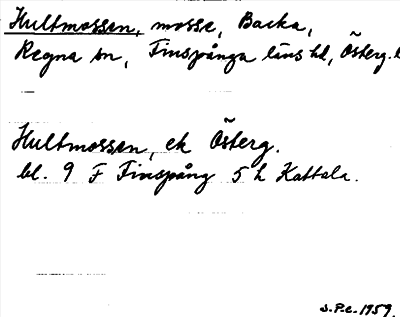 Hultmossen, mosse, Backa,
Regna sn, Finspånga läns hd, Österg.
Hultmossen, ek Österg.
bl. 9 F Finspång 5 h Kattala.
S.P.e. 1959.